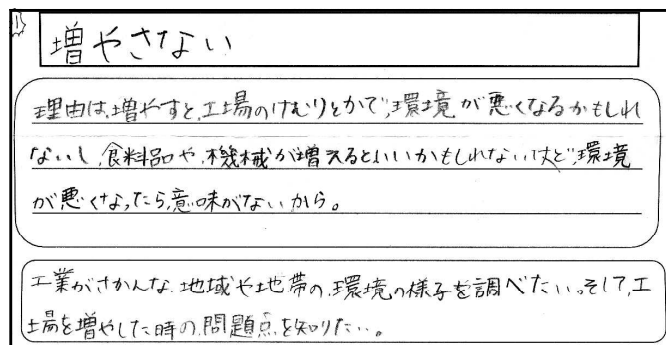 ①
増やさない
理由は、増やすと、工場のけむりとかで、環境が悪くなるかもしれ
ないし、食料品や、機械が増えるといいかもしれないけど、環境
が悪くなったら、意味がないから。
工業がさかんな、地域や地帯の、環境の様子を調べたい。そして、工
場を増やした時の、問題点を知りたい。